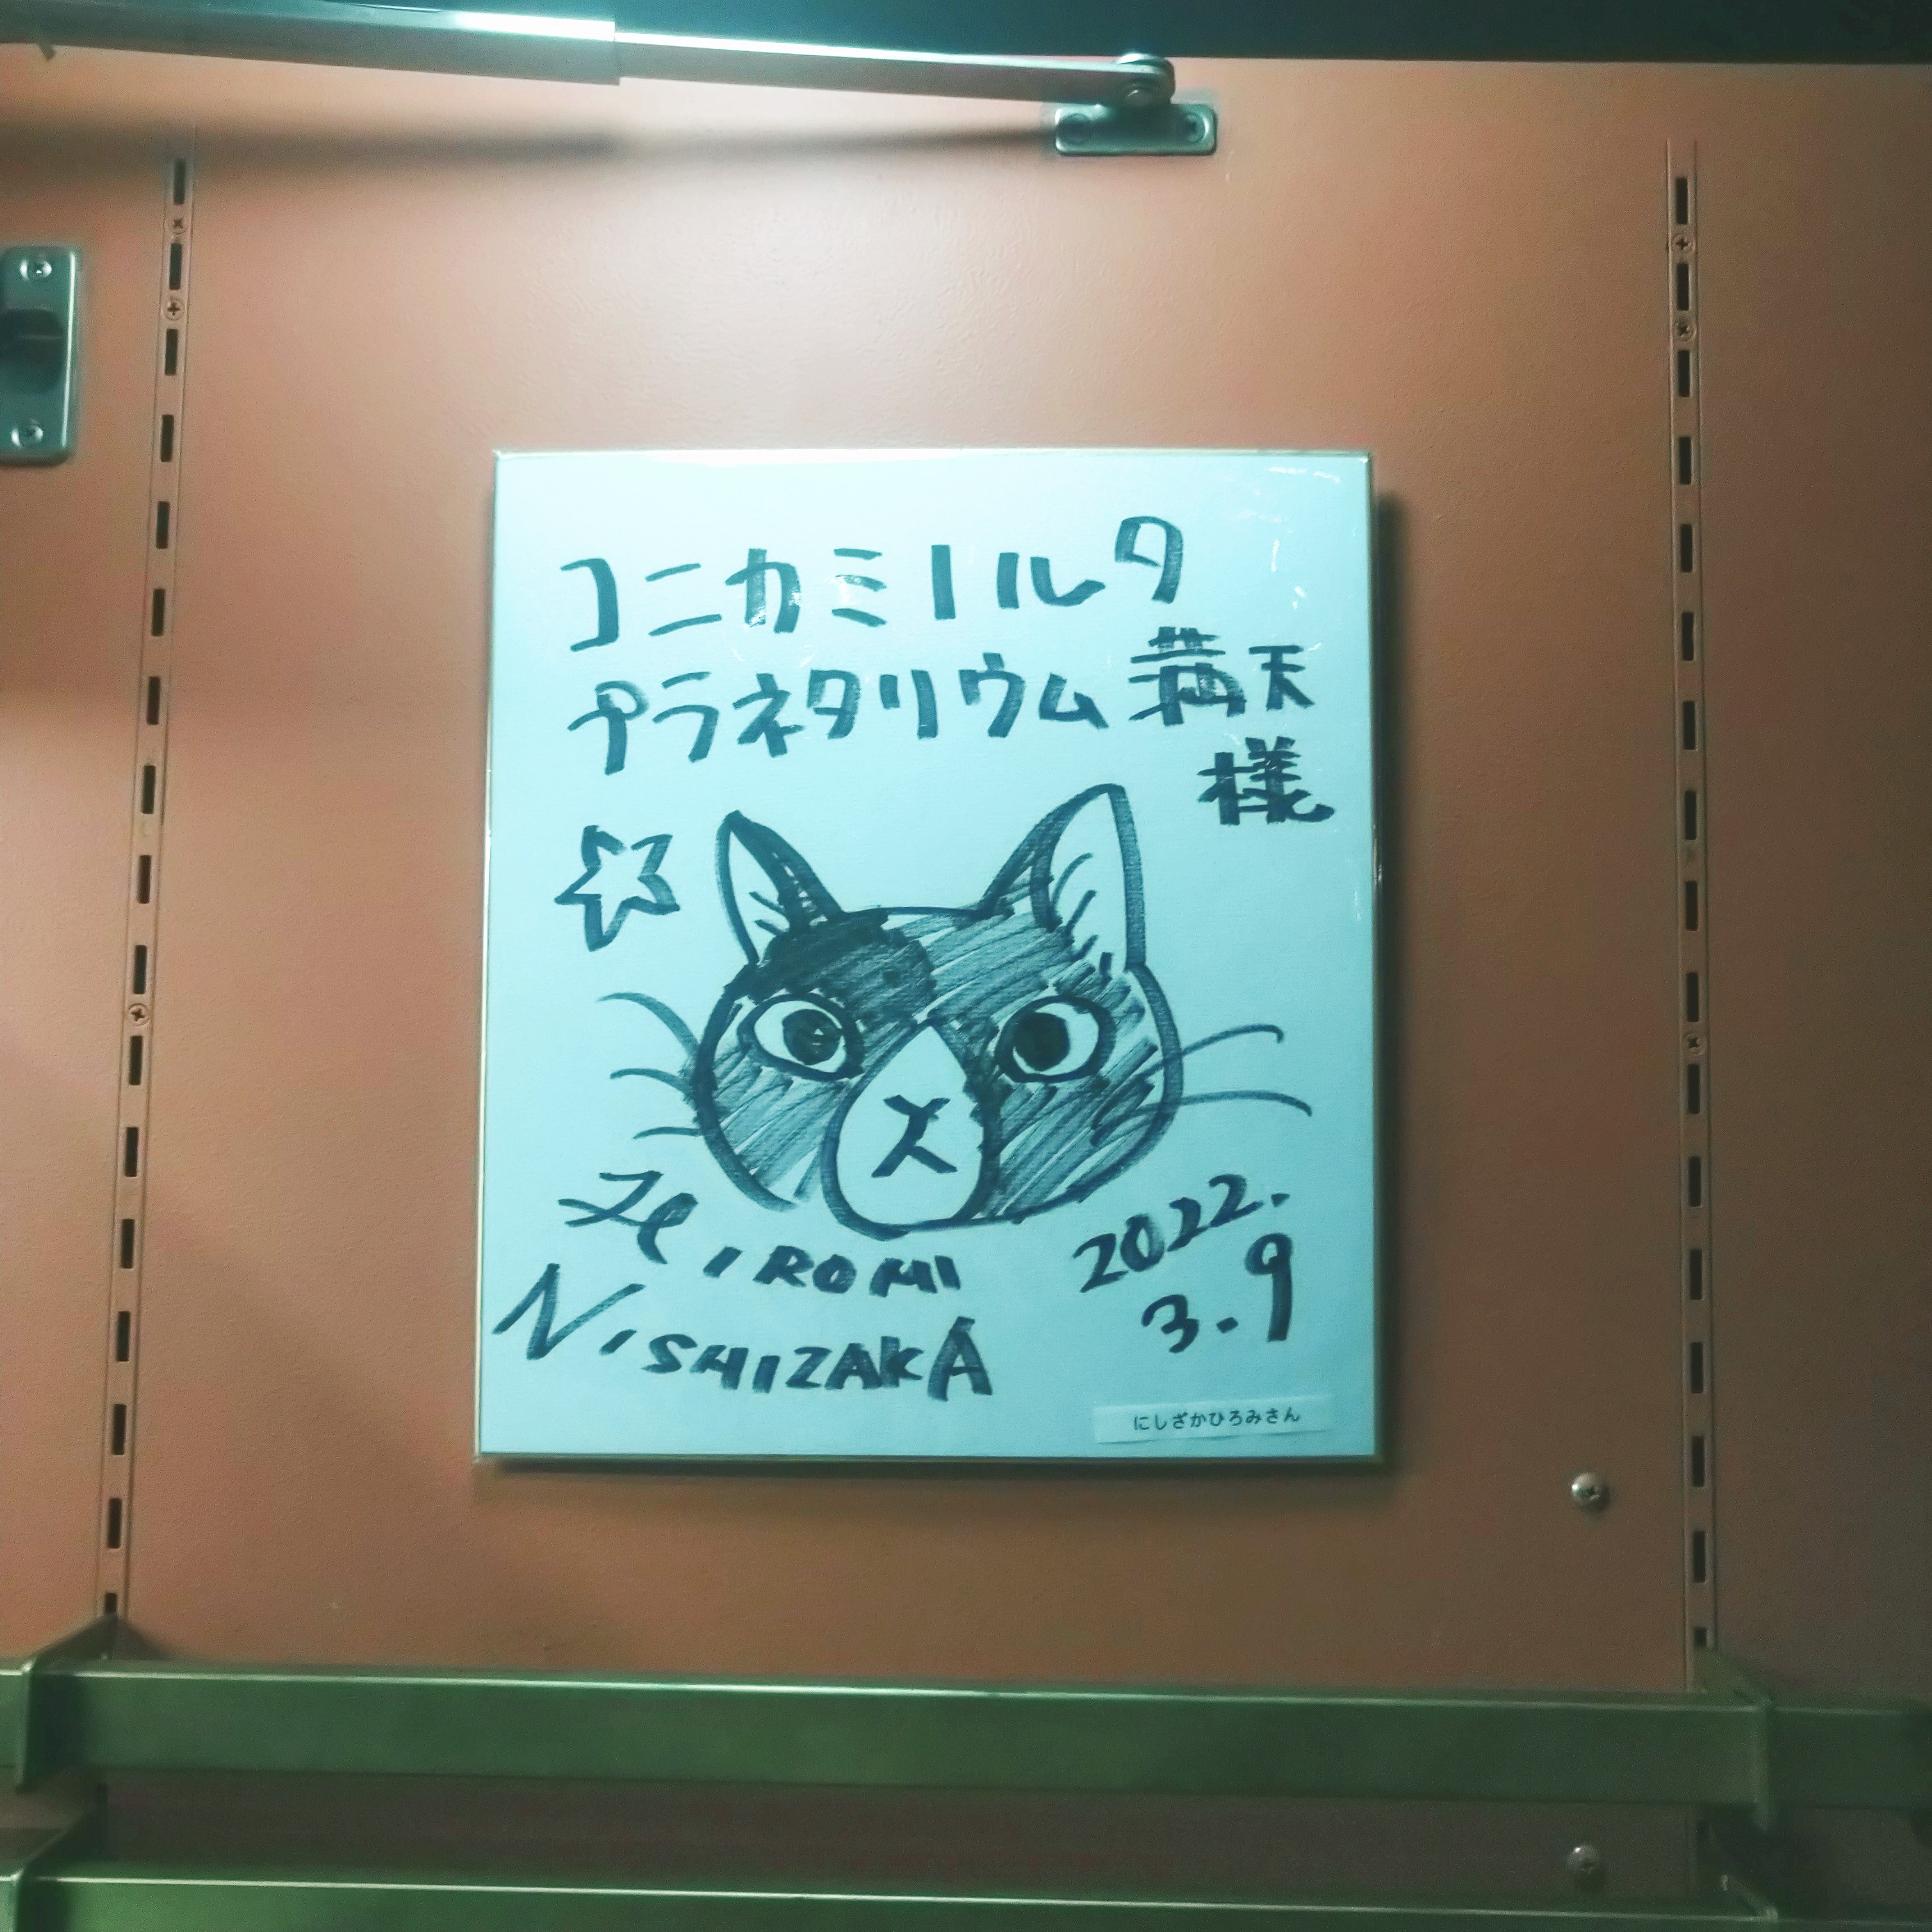 コニカミノルタ
プラネタリウム満天
様
HIROMI
NISHIZAKA
2022.
3.9
にしざかひろみさん